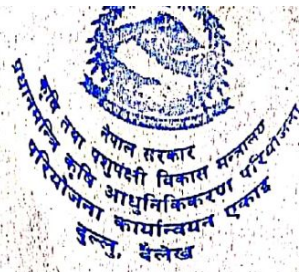 नेपाल सरकार
कृषि तथा पशुपंक्षी विकास मन्त्रालय
प्रधानमन्त्रि कृषि आधुनिकिकरण परियोजना
परियोजना कार्यान्वयन एकाई
दुल्लु, दैलेख